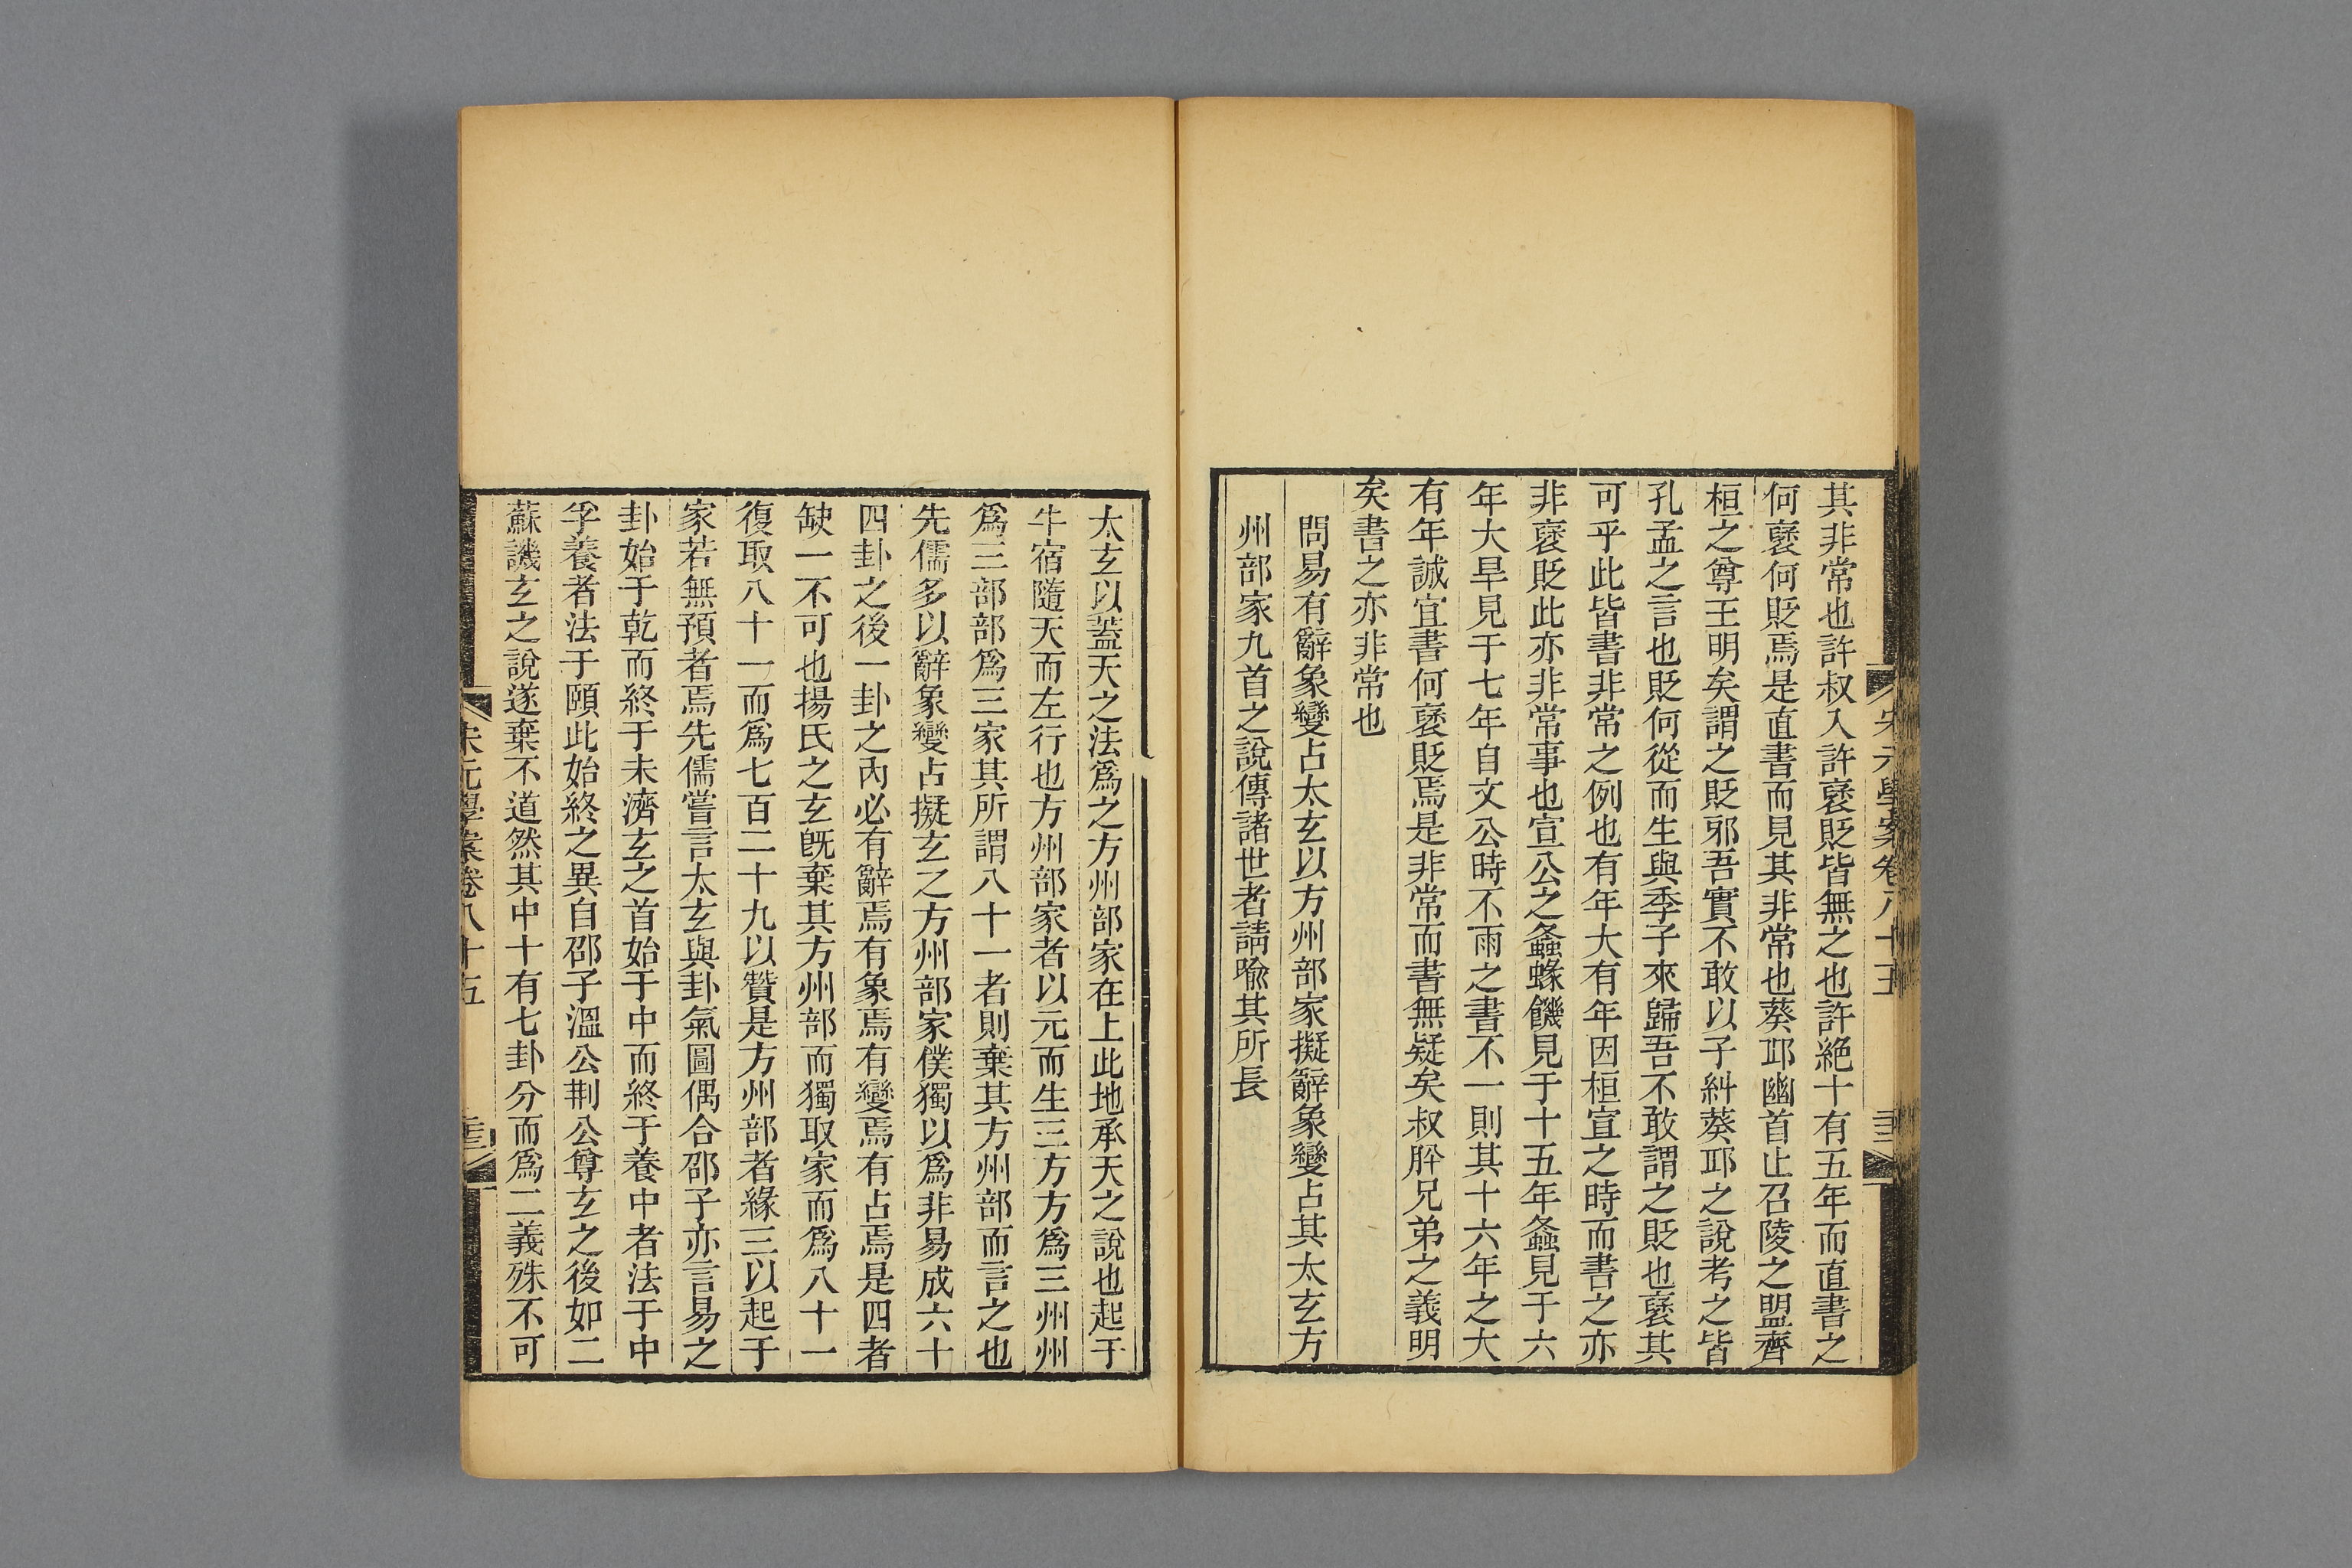 宋元學案卷八十五
其非常也許叔入許襃貶皆無之也許絕十有五年而直書之
何襃何貶焉是直書而見其非常也葵邱幽首止召陵之盟齊
桓之尊王明矣謂之貶邪吾實不敢以子糾葵邱之說考之皆
孔孟之言也貶何從而生與季子來歸吾不敢謂之貶也襃其
可乎此皆書非常之例也有年大有年因桓宣之時而書之亦
非襃貶此亦非常事也宣公之螽蝝饑見于十五年螽見于六
年大旱見于七年自文公時不雨之書不一則其十六年之大
有年誠宜書何襃貶焉是非常而書無疑矣叔肸兄弟之義明
矣書之亦非常也
問易有辭象變占太玄以方州部家擬辭象變占其太玄方
州部家九首之說傳諸世者請喻其所長
太玄以蓋天之法爲之方州部家在上此地承天之說也起于
牛宿隨天而左行也方州部家者以元而生三方方爲三州州
爲三部部爲三家其所謂八十一者則棄其方州部而言之也
先儒多以辭象變占擬玄之方州部家僕獨以爲非易成六十
四卦之後一卦之內必有辭焉有象焉有變焉有占焉是四者
缺一不可也揚氏之玄旣棄其方州部而獨取家而爲八十一
復取八十一而爲七百二十九以贊是方州部者緣三以起于
家若無預者焉先儒嘗言太玄與卦氣圖偶合邵子亦言易之
卦始于乾而終于未濟玄之首始于中而終于養中者法于中
孚養者法于頤此始終之異自邵子溫公荆公尊玄之後如二
蘇譏玄之說遂棄不道然其中十有七卦分而爲二義殊不可
宋元學案卷八十五